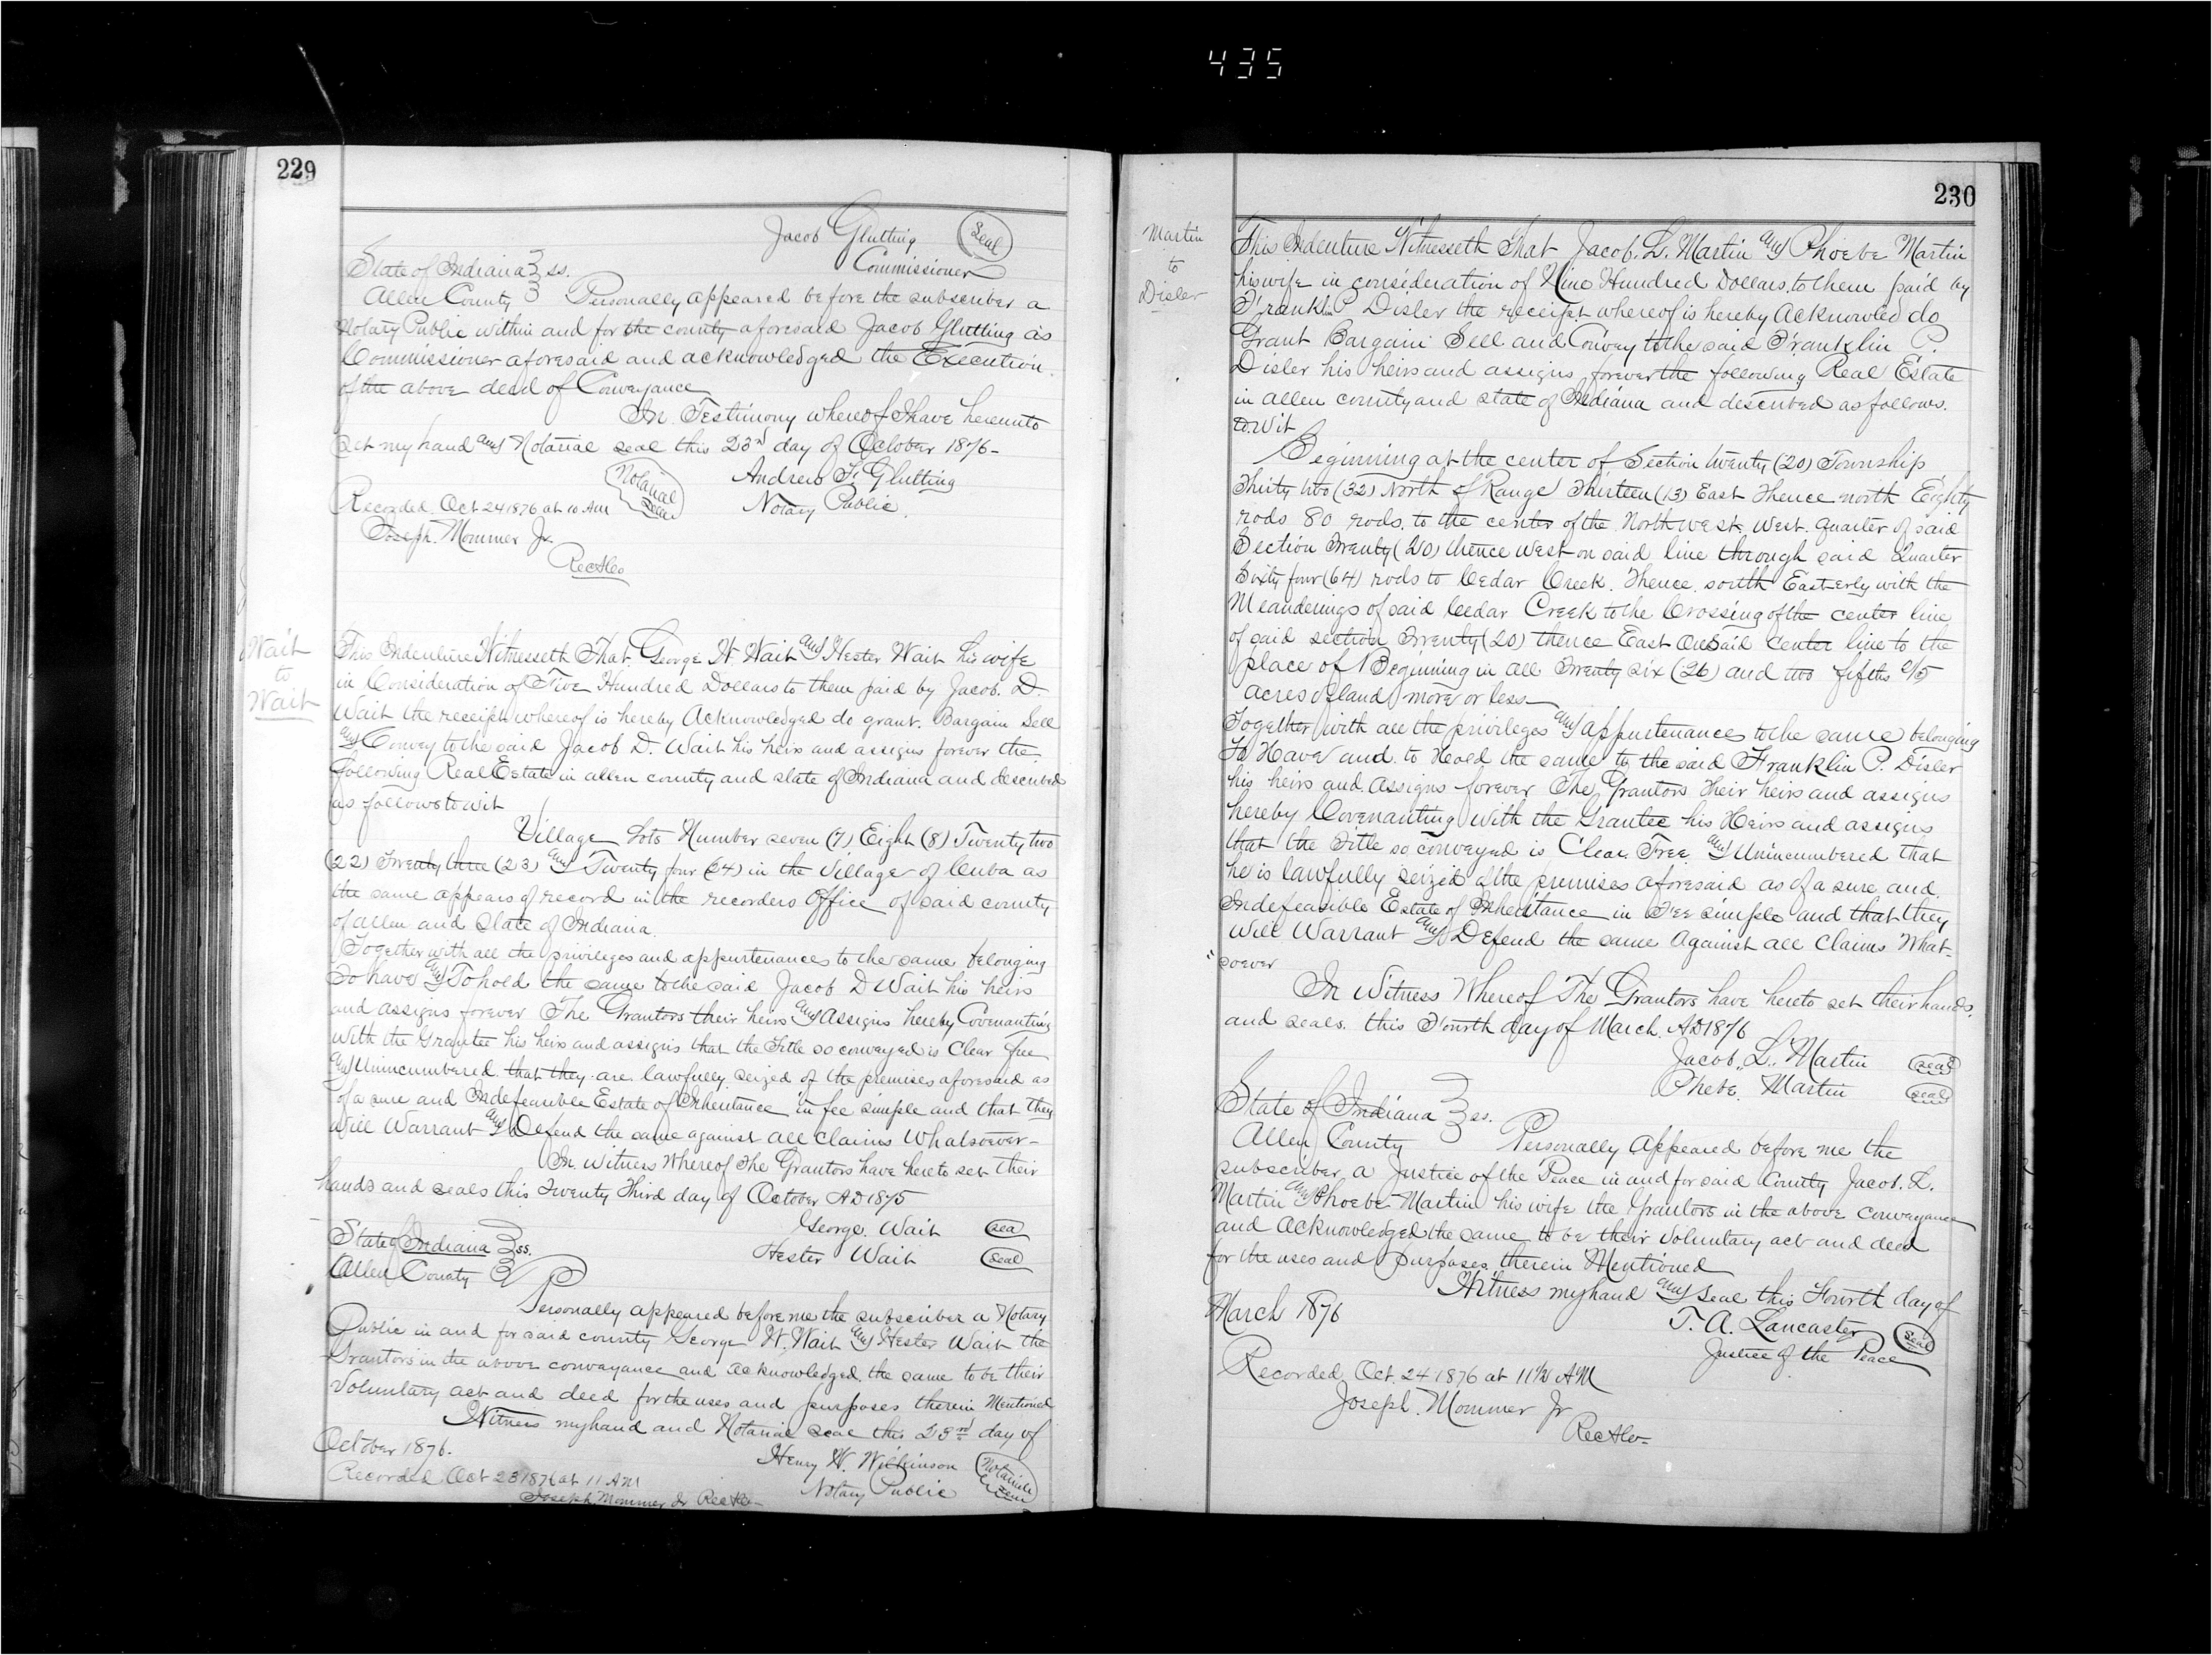 435
229
Jacob Glutting Seal
Commissioner
State of Indiana ss.
Allen County Personally appeared before the subscriber a
Notary Public within and for the county aforesaid Jacob Glutting as
Commissioner aforesaid and acknowledged the Execution
of the above deed of Conveyance
In Testimony whereof I have hereunto
set my hand and Notarial seal this 23rd day of October 1876-
Notarial Seal Andrew F. Glutting
Recorded Oct 24 1876 at 10 AM Notary Public.
Joseph Mommer Jr.
RecAlco
Wait
to
Wait
This Indenture Witnesseth That George W. Wait and Hester Wait his wife
in Consideration of Five Hundred Dollars to them paid by Jacob. D.
Wait the receipt whereof is hereby Acknowledged do grant. Bargain Sell
and Convey to the said Jacob D. Wait his heirs and assigns forever the
following Real Estate in allen county and state of Indiana and described
as follows to wit
Village Lots Number seven (7) Eight (8) Twenty two
(22) Twenty three (23) and Twenty four (24) in the Village of Cuba as
the same appears of record in the recorders Office of said county
of allen and State of Indiana.
Together with all the privileges and appurtenances to the same belonging
To have and To hold the same to the said Jacob D Wait his heirs
and assigns forever The Grantors their heirs and Assigns hereby Covenanting
With the Grantee his heirs and assigns that the Title so conveyed is Clear free
and Unincumbered. that they are lawfully seized of the premises aforesaid as
of a sure and Indefeasible Estate of Inheritance in fee simple and that they
will Warrant and Defend the same against all claims Whatsoever-
In Witness Whereof The Grantors have hereto set their
hands and seals this Twenty Third day of October AD 1875
George. Wait sea
State of Indiana ss. Hester Wait seal
Allen County
Personally appeared before me the subscriber a Notary
Public in and for said county George W. Wait and Hester Wait the
Grantors in the above conveyance and acknowledged the same to be their
Voluntary act and deed for the uses and purposes therein Mentioned
Witness my hand and Notarial seal this 23rd day of
October 1876.
Henry W. Wilkinson Notarial Seal
Recorded Oct 23 1876 at 11 AM Notary Public
Joseph Mommer Jr RecAlco
230
Martin
to
Disler
This Indenture Witnesseth That Jacob. L. Martin and Phoebe Martin
his wife in consideration of Nine Hundred Dollars, to them paid by
Franklin P. Disler the receipt whereof is hereby Acknowled do
Grant Bargain Sell and Convey to the said Franklin P.
Disler his heirs and assigns forever the following Real Estate
in allen county and state of Indiana and described as follows.
to wit
Beginning at the center of Section twenty (20) Township
Thirty two (32) North of Range Thirteen (13) East Thence north Eighty
rods 80 rods. to the center of the North west West. quarter of said
Section Twenty (20) thence West on said line through said Quarter
Sixty four (64) rods to Cedar Creek. Thence south Easterly with the
Meanderings of said Cedar Creek to the Crossing of the center line
of said section Twenty (20) thence East On said Center line to the
place of Beginning in all Twenty six (26) and two fifths 2/5
acres of land more or less
Together with all the privileges and appurtenances to the same belonging
To Have and to Hold the same to the said Franklin P. Disler
his heirs and Assigns forever The Grantors Their heirs and assigns
hereby Covenanting With the Grantee his Heirs and assigns
that the Title so conveyed is Clear Free and Unincumbered that
he is lawfully seized of the premises aforesaid as of a sure and
Indefeasible Estate of Inheritance in Fee simple and that they
Will Warrant and Defend the same Against all Claims What-
soever
In Witness Whereof The Grantors have hereto set their hands
and seals. this Fourth day of March. AD 1876
Jacob. L. Martin seal
Phebe. Martin seal
State of Indiana ss.
Allen County Personally Appeared before me the
subscriber a Justice of the Peace in and for said County Jacob. L.
Martin and Phoebe Martin his wife the Grantors in the above conveyance
and Acknowledged the same to be their Voluntary act and deed
for the uses and purposes therein Mentioned
Witness my hand and seal this Fourth day of
March 1876
T. A. Lancaster Seal
Justice of the Peace
Recorded Oct. 24 1876 at 11 1/2 AM
Joseph. Mommer Jr
RecAlco-